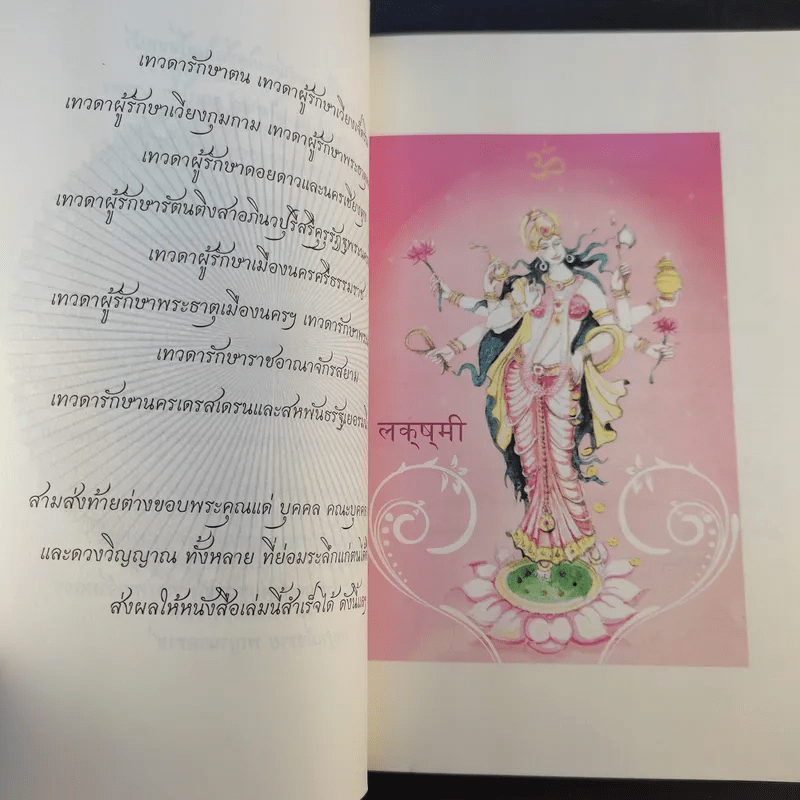 เทวดารักษาตน เทวดาผู้รักษาเวียง
เทวดาผู้รักษาเวียงกุมกาม เทวดาผู้รักษาพระธาตุ
เทวดาผู้รักษาดอยดาวและนครเชียง
เทวดาผู้รักษารัตนติงสาอภินวปุรีสรีคุรุรัฏฐ
เทวดาผู้รักษาเมืองนครศรีธรรมราช
เทวดาผู้รักษาพระธาตุเมืองนครฯ เทวดารักษา
เทวดารักษาราชอาณาจักรสยาม
เทวดารักษานครเดรสเดรนและสหพันธรัฐเยอรมนี
สามส่งท้ายต่างขอบพระคุณแด่ บุคคล คณะบุคคล
และดวงวิญญาณ ทั้งหลาย ที่ย่อมระลึกแก่ตนได้
ส่งผลให้หนังสือเล่มนี้สำเร็จได้ ดังนี้แล
ॐ
लक्ष्मी